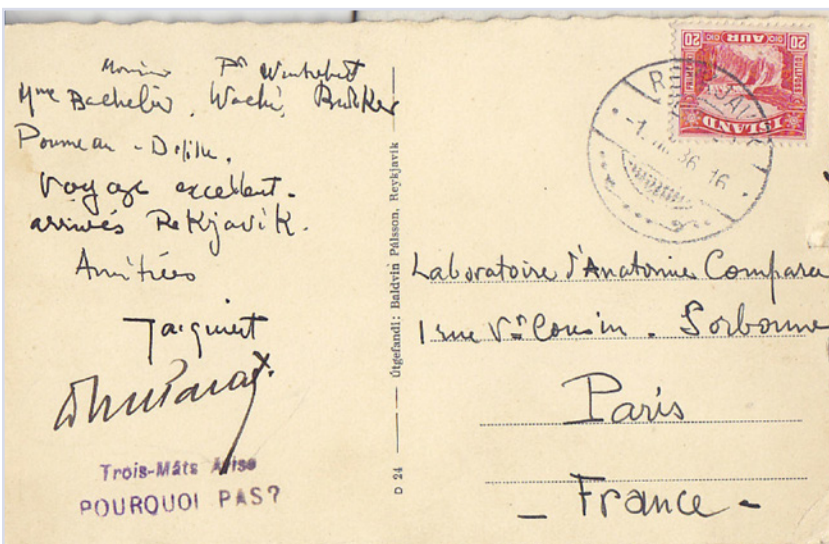 Monsieur Pr Wintrebert
Mme Bachelier,
Poumeau - Delille.
Voyage excellent.
arrivés Rekjavik.
Amitiés
Jacquiert
Trois-Mâts
POURQUOI PAS?
D 24 — Útgefandi: Baldvin Pálsson, Reykjavik
20 AUR 20
ISLAND
36 16
Laboratoire d'Anatomie Comparée
1 rue Vor Cousin - Sorbonne
Paris
- France -